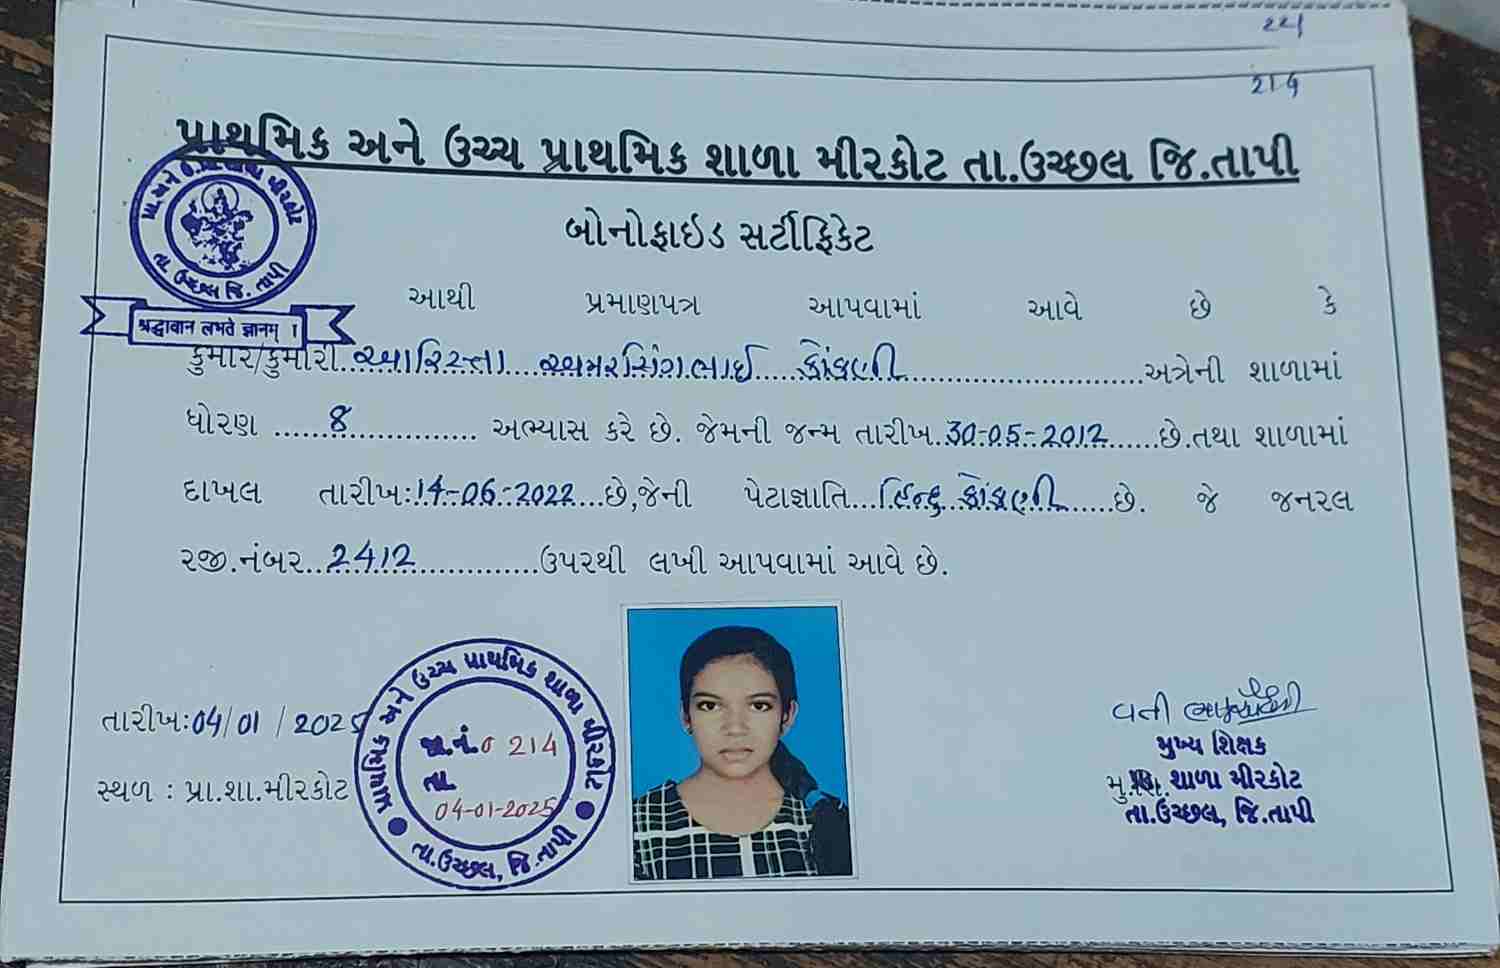 221
214
પ્રાથમિક અને ઉચ્ચ પ્રાથમિક શાળા મીરકોટ તા.ઉચ્છલ જિ.તાપી
બોનોફાઇડ સર્ટીફિકેટ
પ્રા.અને ઉ.પ્રા.શાળા મીરકોટ
તા. ઉચ્છલ જિ. તાપી
श्रद्धावान लभते ज्ञानम् ।
આથી પ્રમાણપત્ર આપવામાં આવે છે કે
કુમાર/કુમારી..અમરસિંગભાઈ..કોંકણી..અત્રેની શાળામાં
ધોરણ ....8.... અભ્યાસ કરે છે. જેમની જન્મ તારીખ..30-05-2012......છે.તથા શાળામાં
દાખલ તારીખ:14-06-2022...છે,જેની પેટાજ્ઞાતિ...હિન્દુ કોંકણી.....છે. જે જનરલ
રજી.નંબર..2412..........ઉપરથી લખી આપવામાં આવે છે.
તારીખ:04/01/2025
સ્થળ : પ્રા.શા.મીરકોટ
પ્રાથમિક અને ઉચ્ચ પ્રાથમિક શાળા મીરકોટ
જા.નં.0 214
તા.
04-01-2025
તા.ઉચ્છલ, જિ.તાપી
વતી
મુખ્ય શિક્ષક
શાળા મીરકોટ
તા.ઉચ્છલ, જિ.તાપી